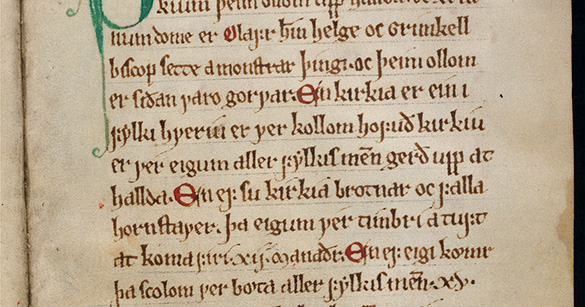 kium þeim ollom upp hallda
num dome er Olafr hin helge oc Grimkell
biscop sette a monstrar þingi. oc þeim ollom
er siðan varo gorvar. En kirkia er ein i
fylki hveriu er ver kollom hofuð kirkiu
er ver eigum aller fylkis men̄ gerd upp at
hallda. En ef su kirkia brotnar oc falla
hornstaver. þa eigum ver timbri a tuft
at koma firi .xij. manaðr. En ef eigi komr
þa scolom ver bota aller fylkis men̄. xv.